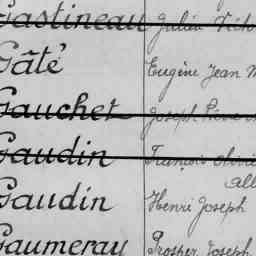 Gastineau Julien Victo
Gâté Eugène Jean M
Gauchet Joseph Pierre
Gaudin François Olivie
All
Gaudin Henri Joseph
Gaumeray Prosper Joseph